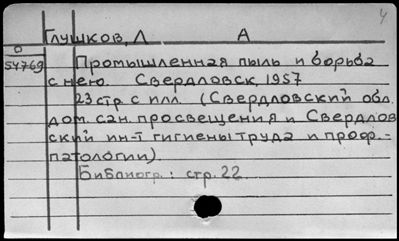 4
Глушков, Л А
О
54769 Промышленная пыль и борьба
с нею. Свердловск, 1957
23 стр. с илл. (Свердловский обл.
дом. сан. просвещения и Свердлов
ский ин-т гигиены труда и проф.-
патологии).
Библиогр.: стр. 22